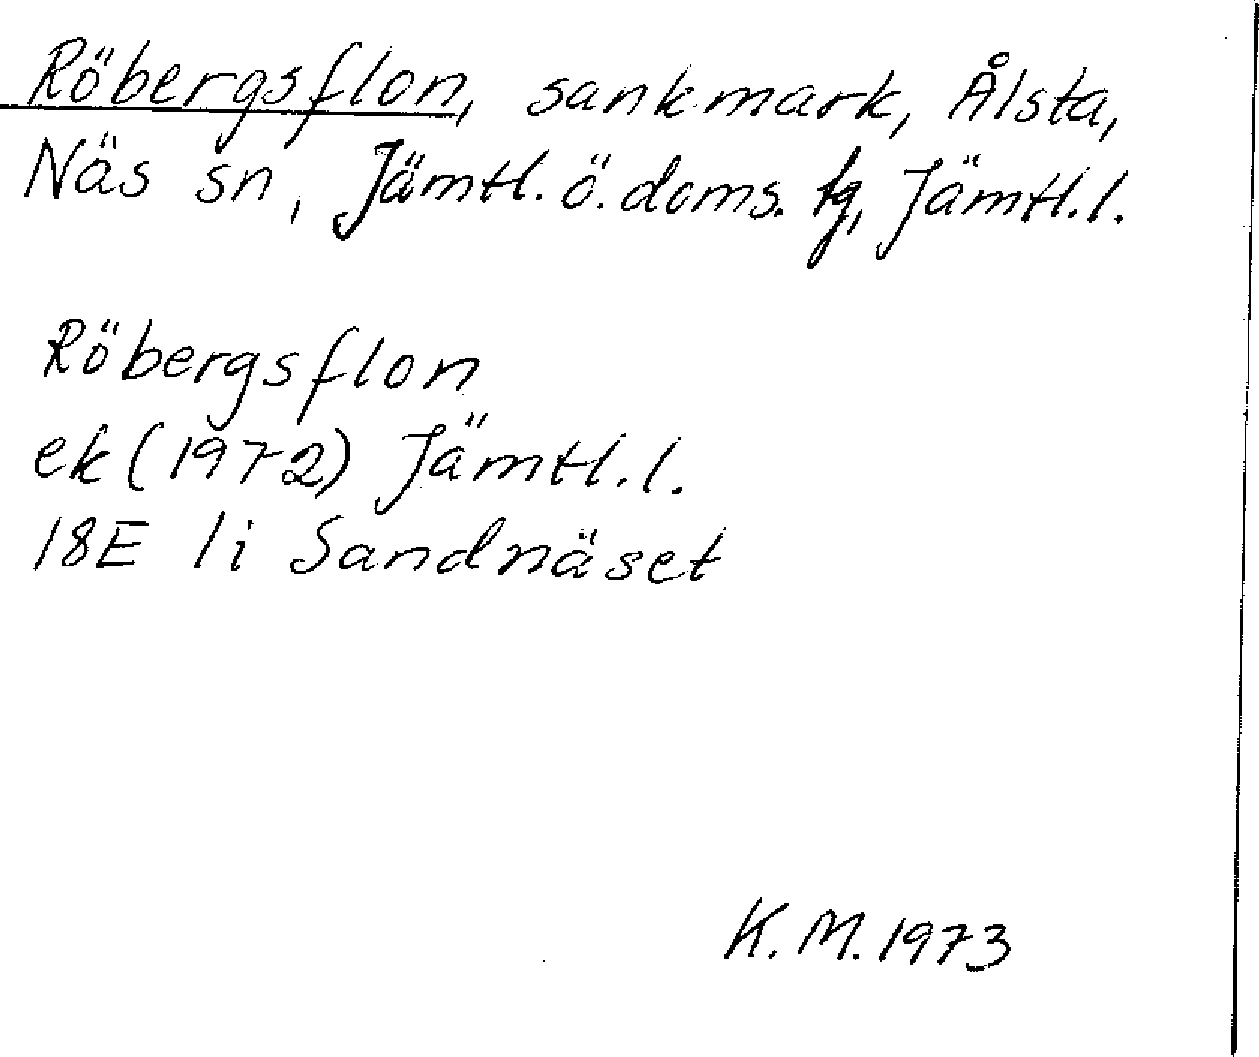 Röbergsflon, sankmark, Ålsta,
Näs sn, Jämtl. ö. doms. tg, Jämtl. l.
Röbergsflon
ek (1972) Jämtl. l.
18E 1i Sandnäset
K. M. 1973